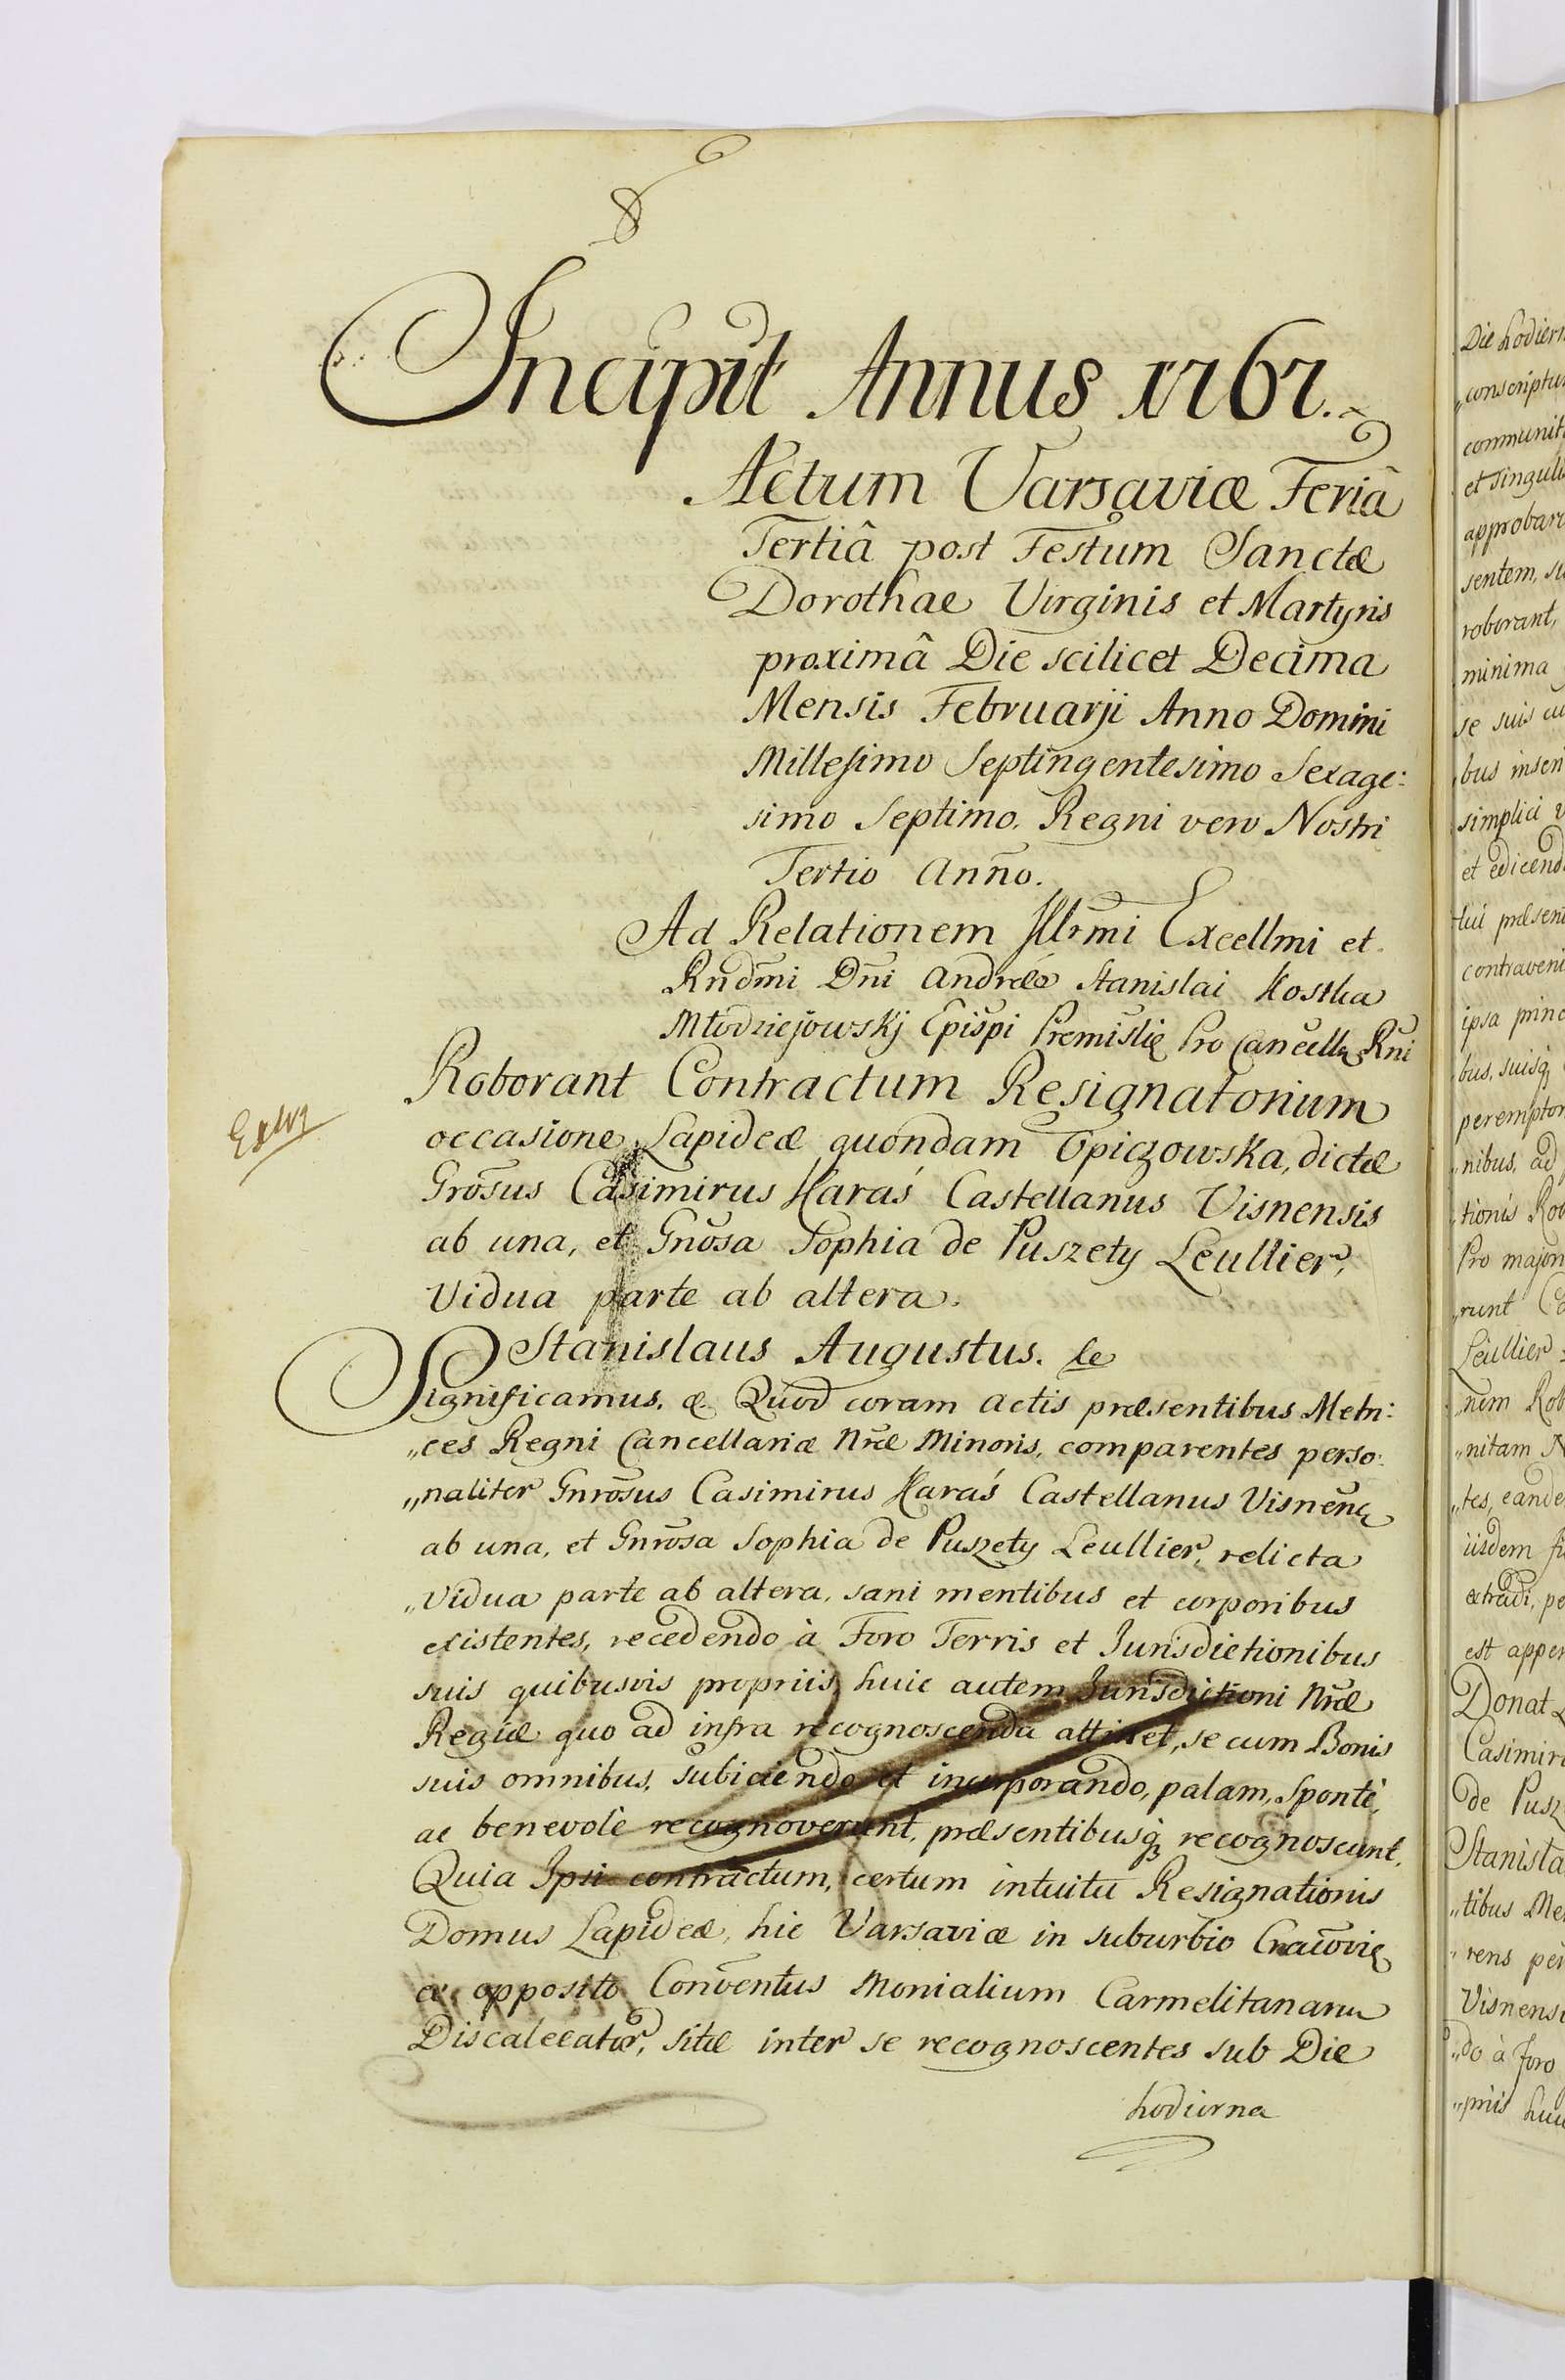 Incipit Annus 1767.
Actum Varsaviæ Feriâ
Tertiâ post Festum Sanctæ
Dorothae Virginis et Martyris
proximâ Die scilicet Decima
Mensis Februarji Anno Domini
Millesimo Septingentesimo Sexage:
simo Septimo. Regni vero Nostri
Tertio Anno.
Ad Relationem Illrmi Excellmi et
Rndmi Dni Andreæ Stanislai Kostka
Młodziejowskj Epispi Premislię Pro Cancellę Rni
Roborant Contractum Resignatorium
occasione Lapideæ quondam Opiczowska, dictæ
Grosus Casimirus Karaś Castellanus Visnensis
ab una, et Gnosa Sophia de Puszety Leullier,
Vidua parte ab altera.
Stanislaus Augustus.
Significamus. &. Quod coram actis præsentibus Metri:
„ces Regni Cancellariæ Nræ Minoris, comparentes perso:
„naliter Gnrosus Casimirus Karaś Castellanus Visnen
ab una, et Gnrosa Sophia de Puszety Leullier, relicta
„Vidua parte ab altera, sani mentibus et corporibus
existentes, recedendo à Foro Terris et Jurisdictionibus
suis quibusvis propriis, huic autem Jurisdictioni Nræ
Regiæ quo ad infra recognoscenda attinet, se cum Bonis
suis omnibus, subiciendo et incorporando, palam, Spontè,
ac benevolè recognoverunt, præsentibusq, recognoscunt.
Quia Ipsi contractum, certum intuitu Resignationis
Domus Lapideæ, hic Varsaviæ in suburbio Cracovię
ex opposito Conventus Monialium Carmelitanaru
Discalceatar, sitæ inter se recognoscentes sub Die
hodierna
Die hodiern
„conscriptu
communit
et singul
approbar
sentem, su
roborant,
minima
se suis cu
bus insen
simplici v
et edicend
tui præsen
contraveni
ipsa princ
bus, suisq
peremptor
nibus, ad
tionis Rob
Pro major
runt Ca
Leullier
nem Rob
„nitam N
„tes, eande
iisdem
extradi, pe
est appen
Donat
Casimir
de Pusz
Stanisla
„tibus Me
rens per
Visnensi
„do à foro
„priis huic